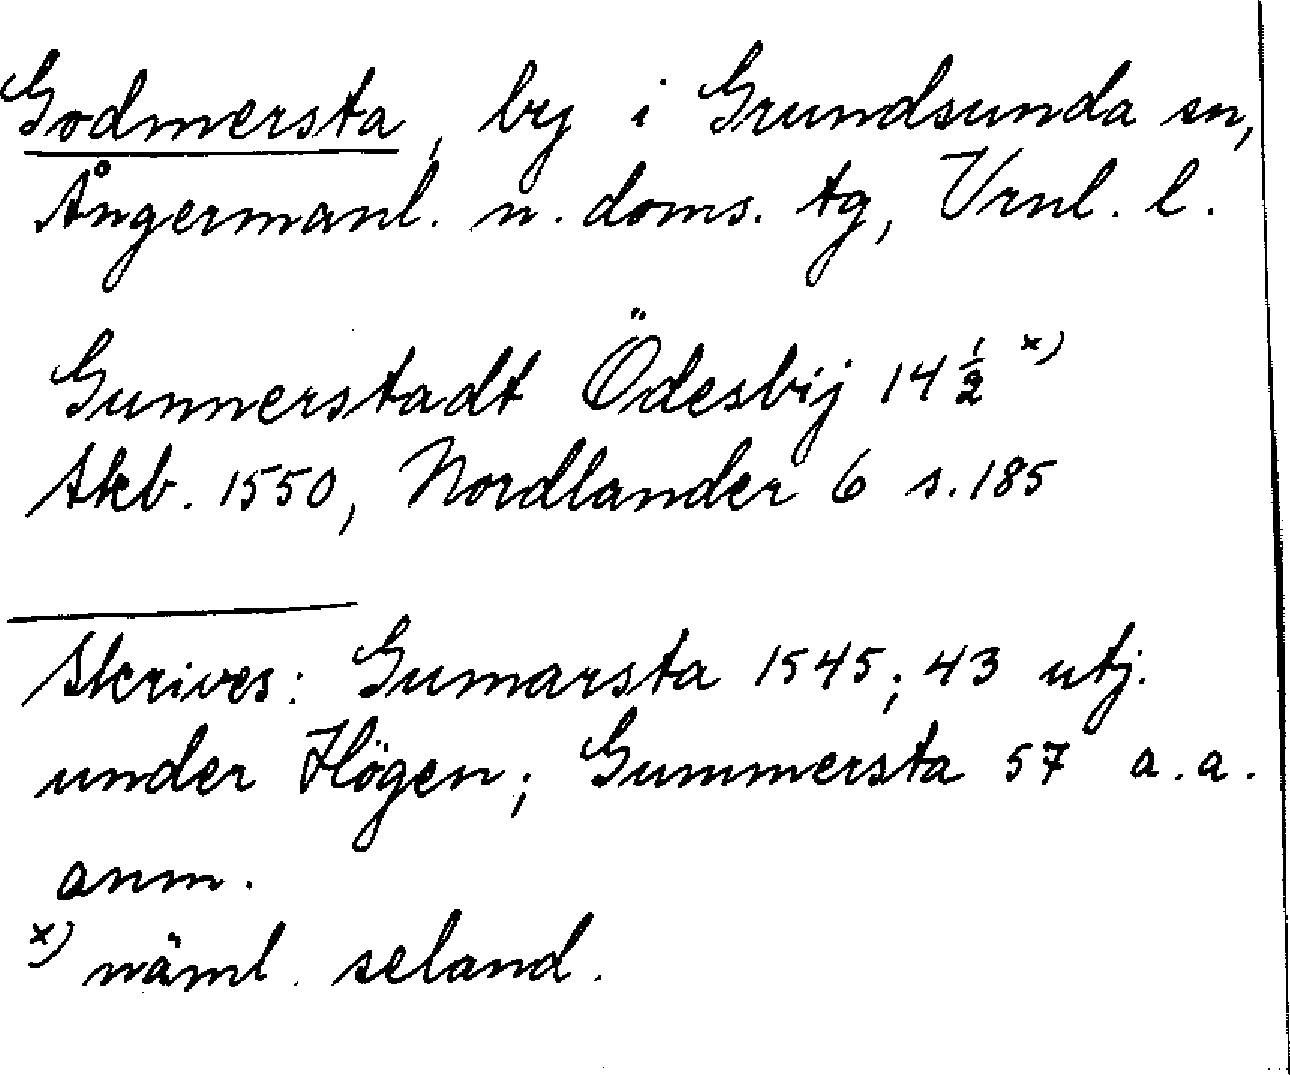 Godmersta, by i Grundsunda sn,
Ångermanl. n. doms. tg, Vrnl. l.
Gunnerstadt Ödesbij 14 ½ x)
Skb. 1550, Nordlander 6 s. 185
Skrives: Gumarsta 1545; 43 utj.
under Högen; Gummersta 57 a. a.
anm.
x) näml. seland.